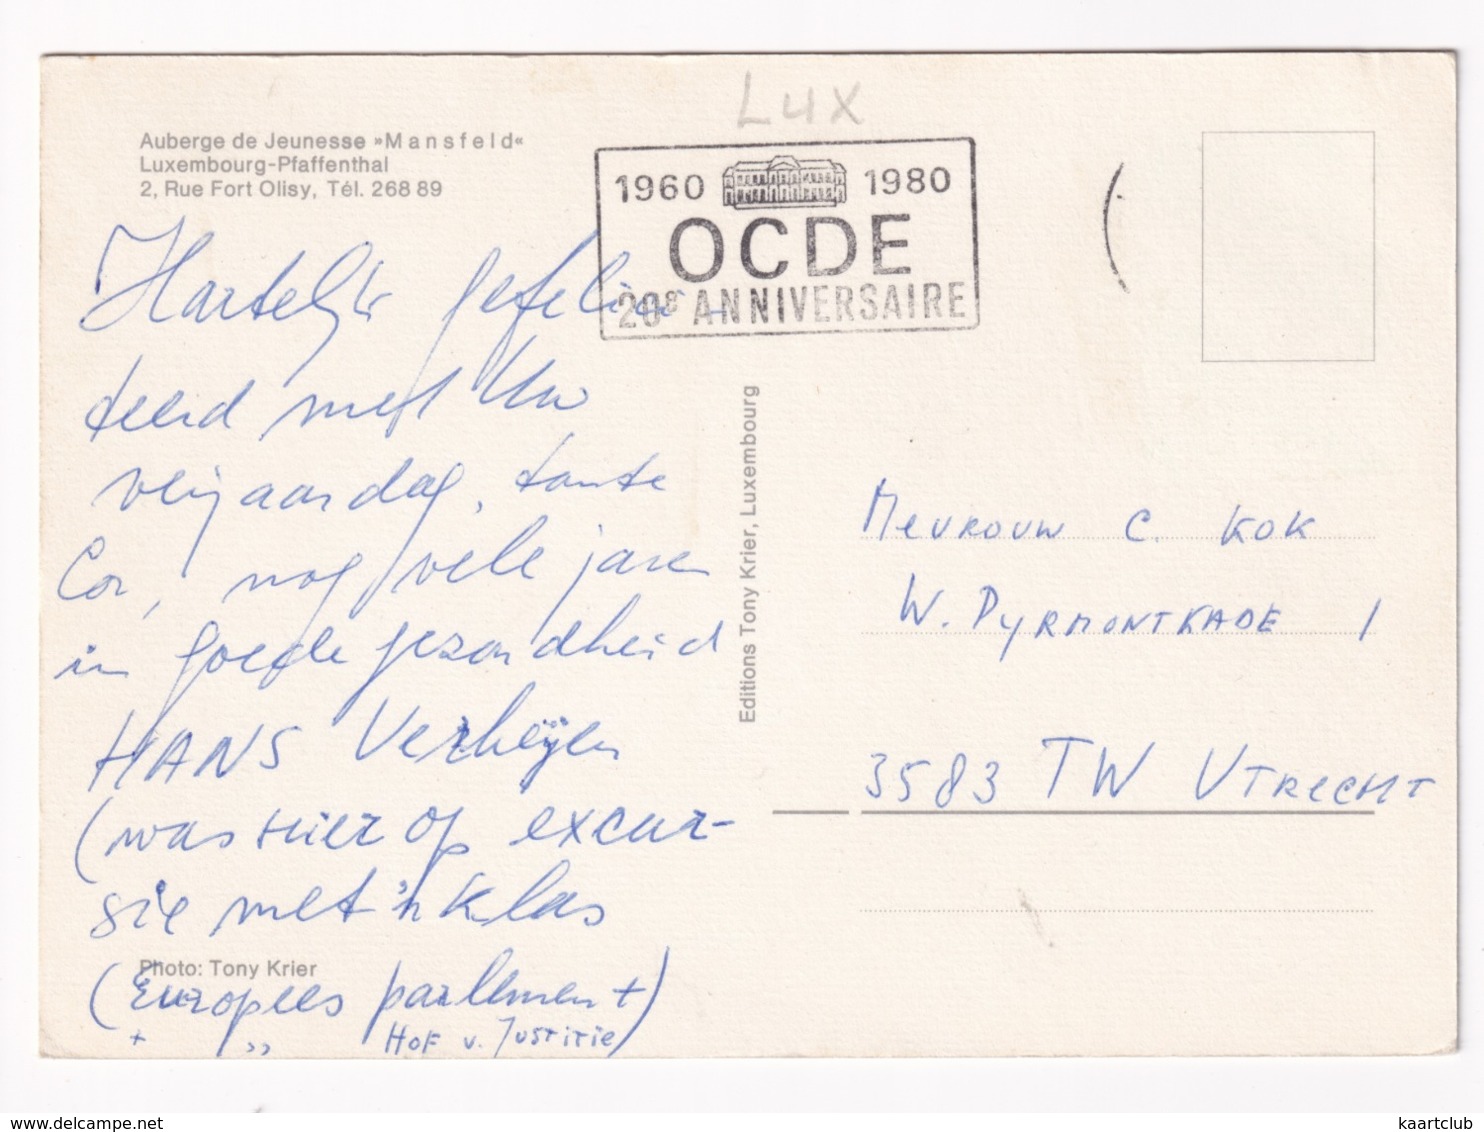 LUX
Auberge de Jeunesse »Mansfeld«
Luxembourg-Pfaffenthal
2, Rue Fort Olisy, Tél. 268 89
1960 1980
OCDE
20e ANNIVERSAIRE
Hartelijk gefelici-
teerd met Uw
verjaardag, tante
Cor, nog vele jaren
in goede gezondheid
HANS Verheijen
(was hier op excur-
sie met 'n klas
(Europees parlement)
+ ,, HOF v. JUSTITIE)
Photo: Tony Krier
Editions Tony Krier, Luxembourg
MEVROUW C. KOK
W. PYRMONTKADE 1
3583 TW UTRECHT
www.delcampe.net
kaartclub